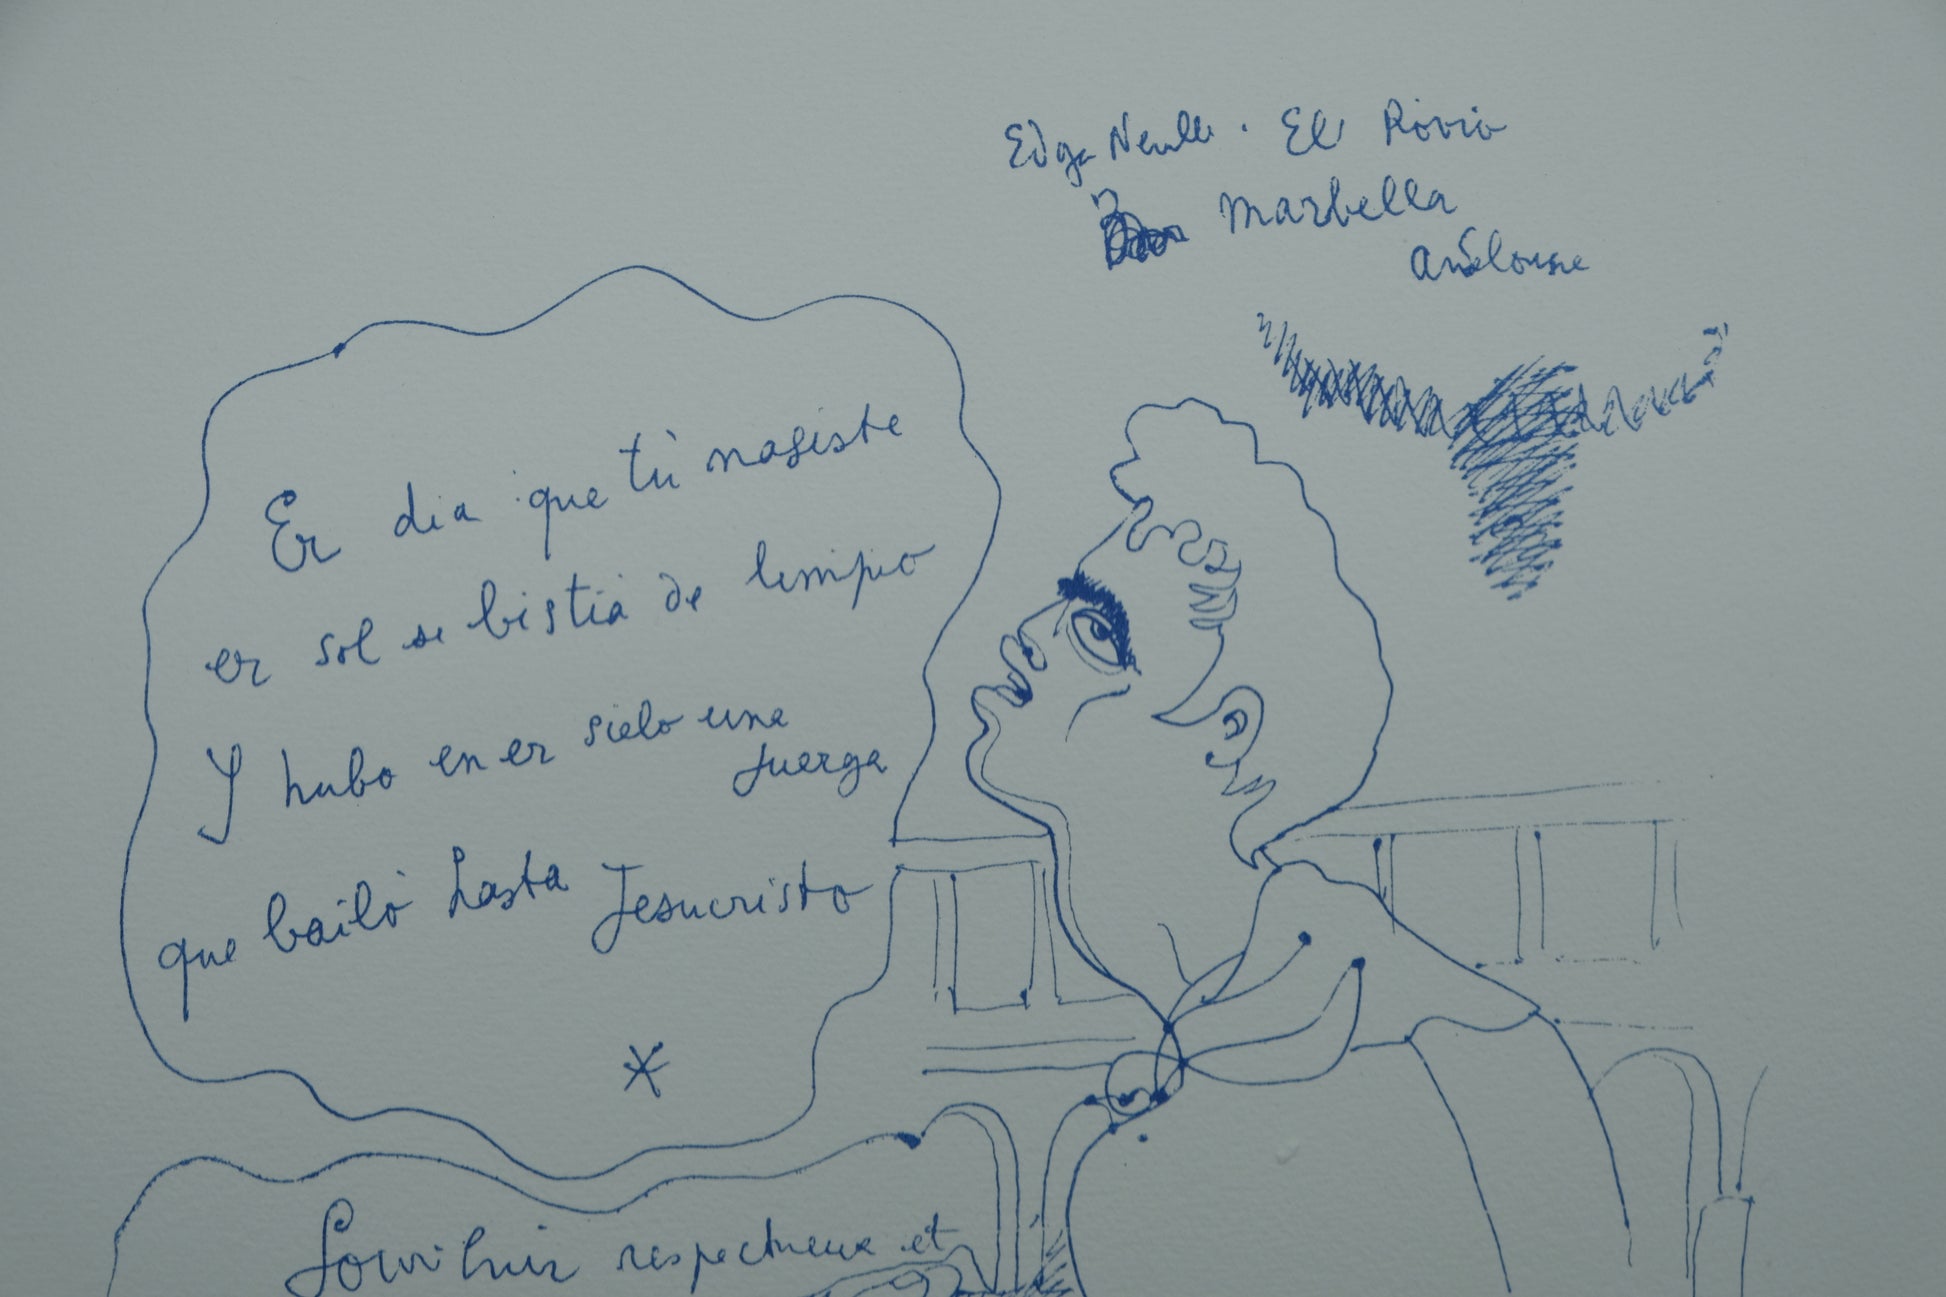 Edgar Neville. El Rovio
Marbella
Andalousie
Er dia que tú nasiste
er sol se bistiá de limpio
Y hubo en er sielo una
juerga
que bailó hasta Jesucristo
Souvenir respectueux et